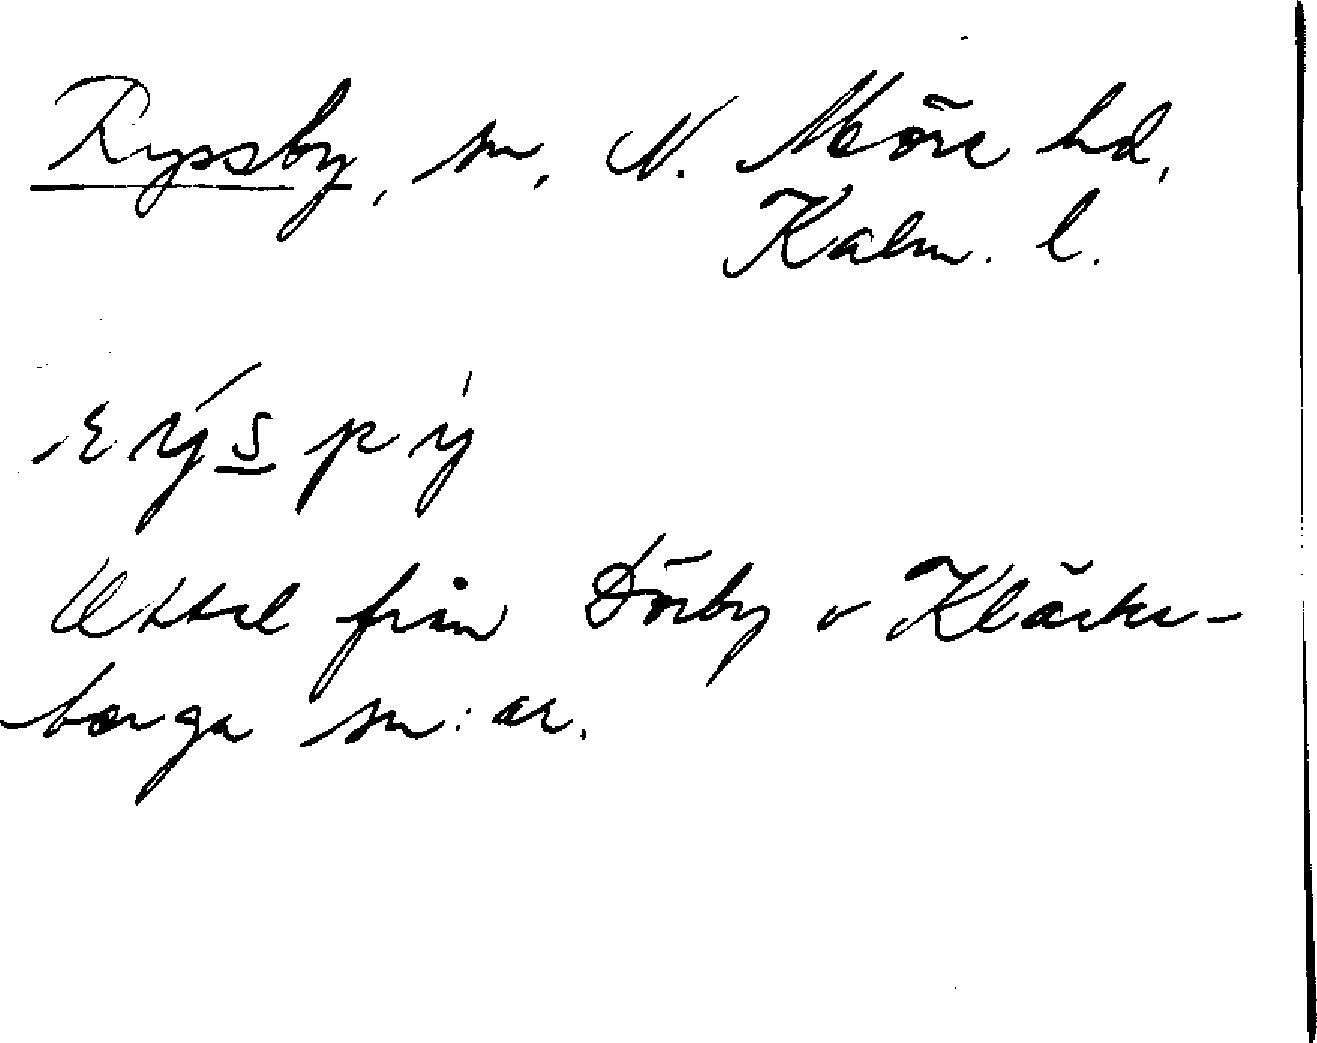 Ryssby, sn, N. Möre hd,
Kalm. l.
rýspý
Uttal från Dörby o Kläcke-
berga sn:ar.